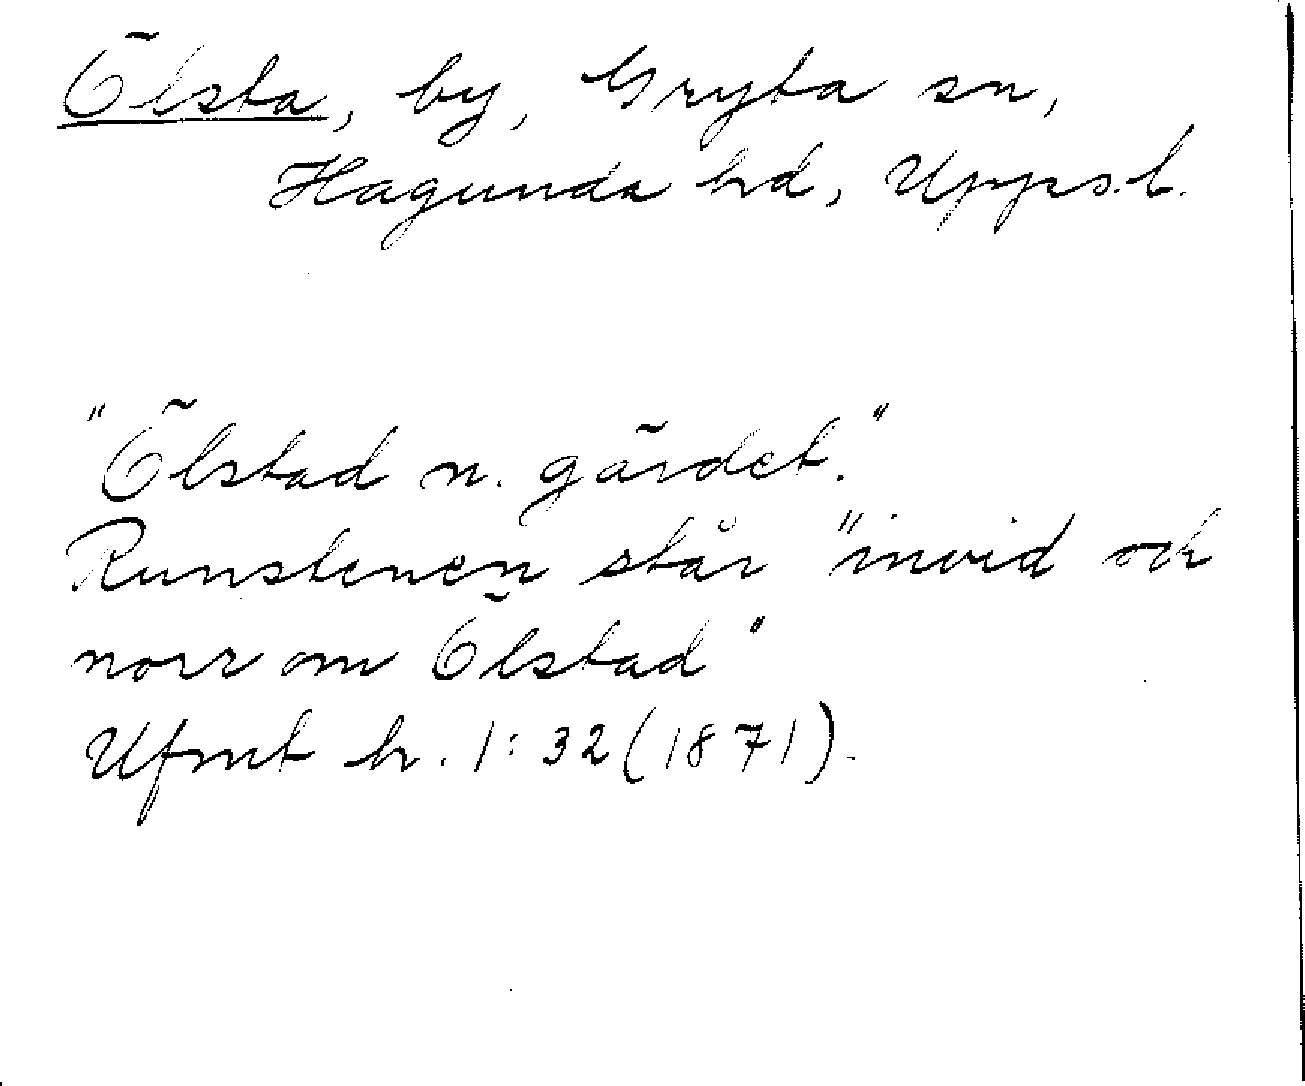 Ölsta, by, Gryta sn,
Hagunda hd, Upps.l.
"Ölstad n. gärdet."
Runstenen står "invid och
norr om Ölstad"
Ufmt h. 1: 32 (1871).